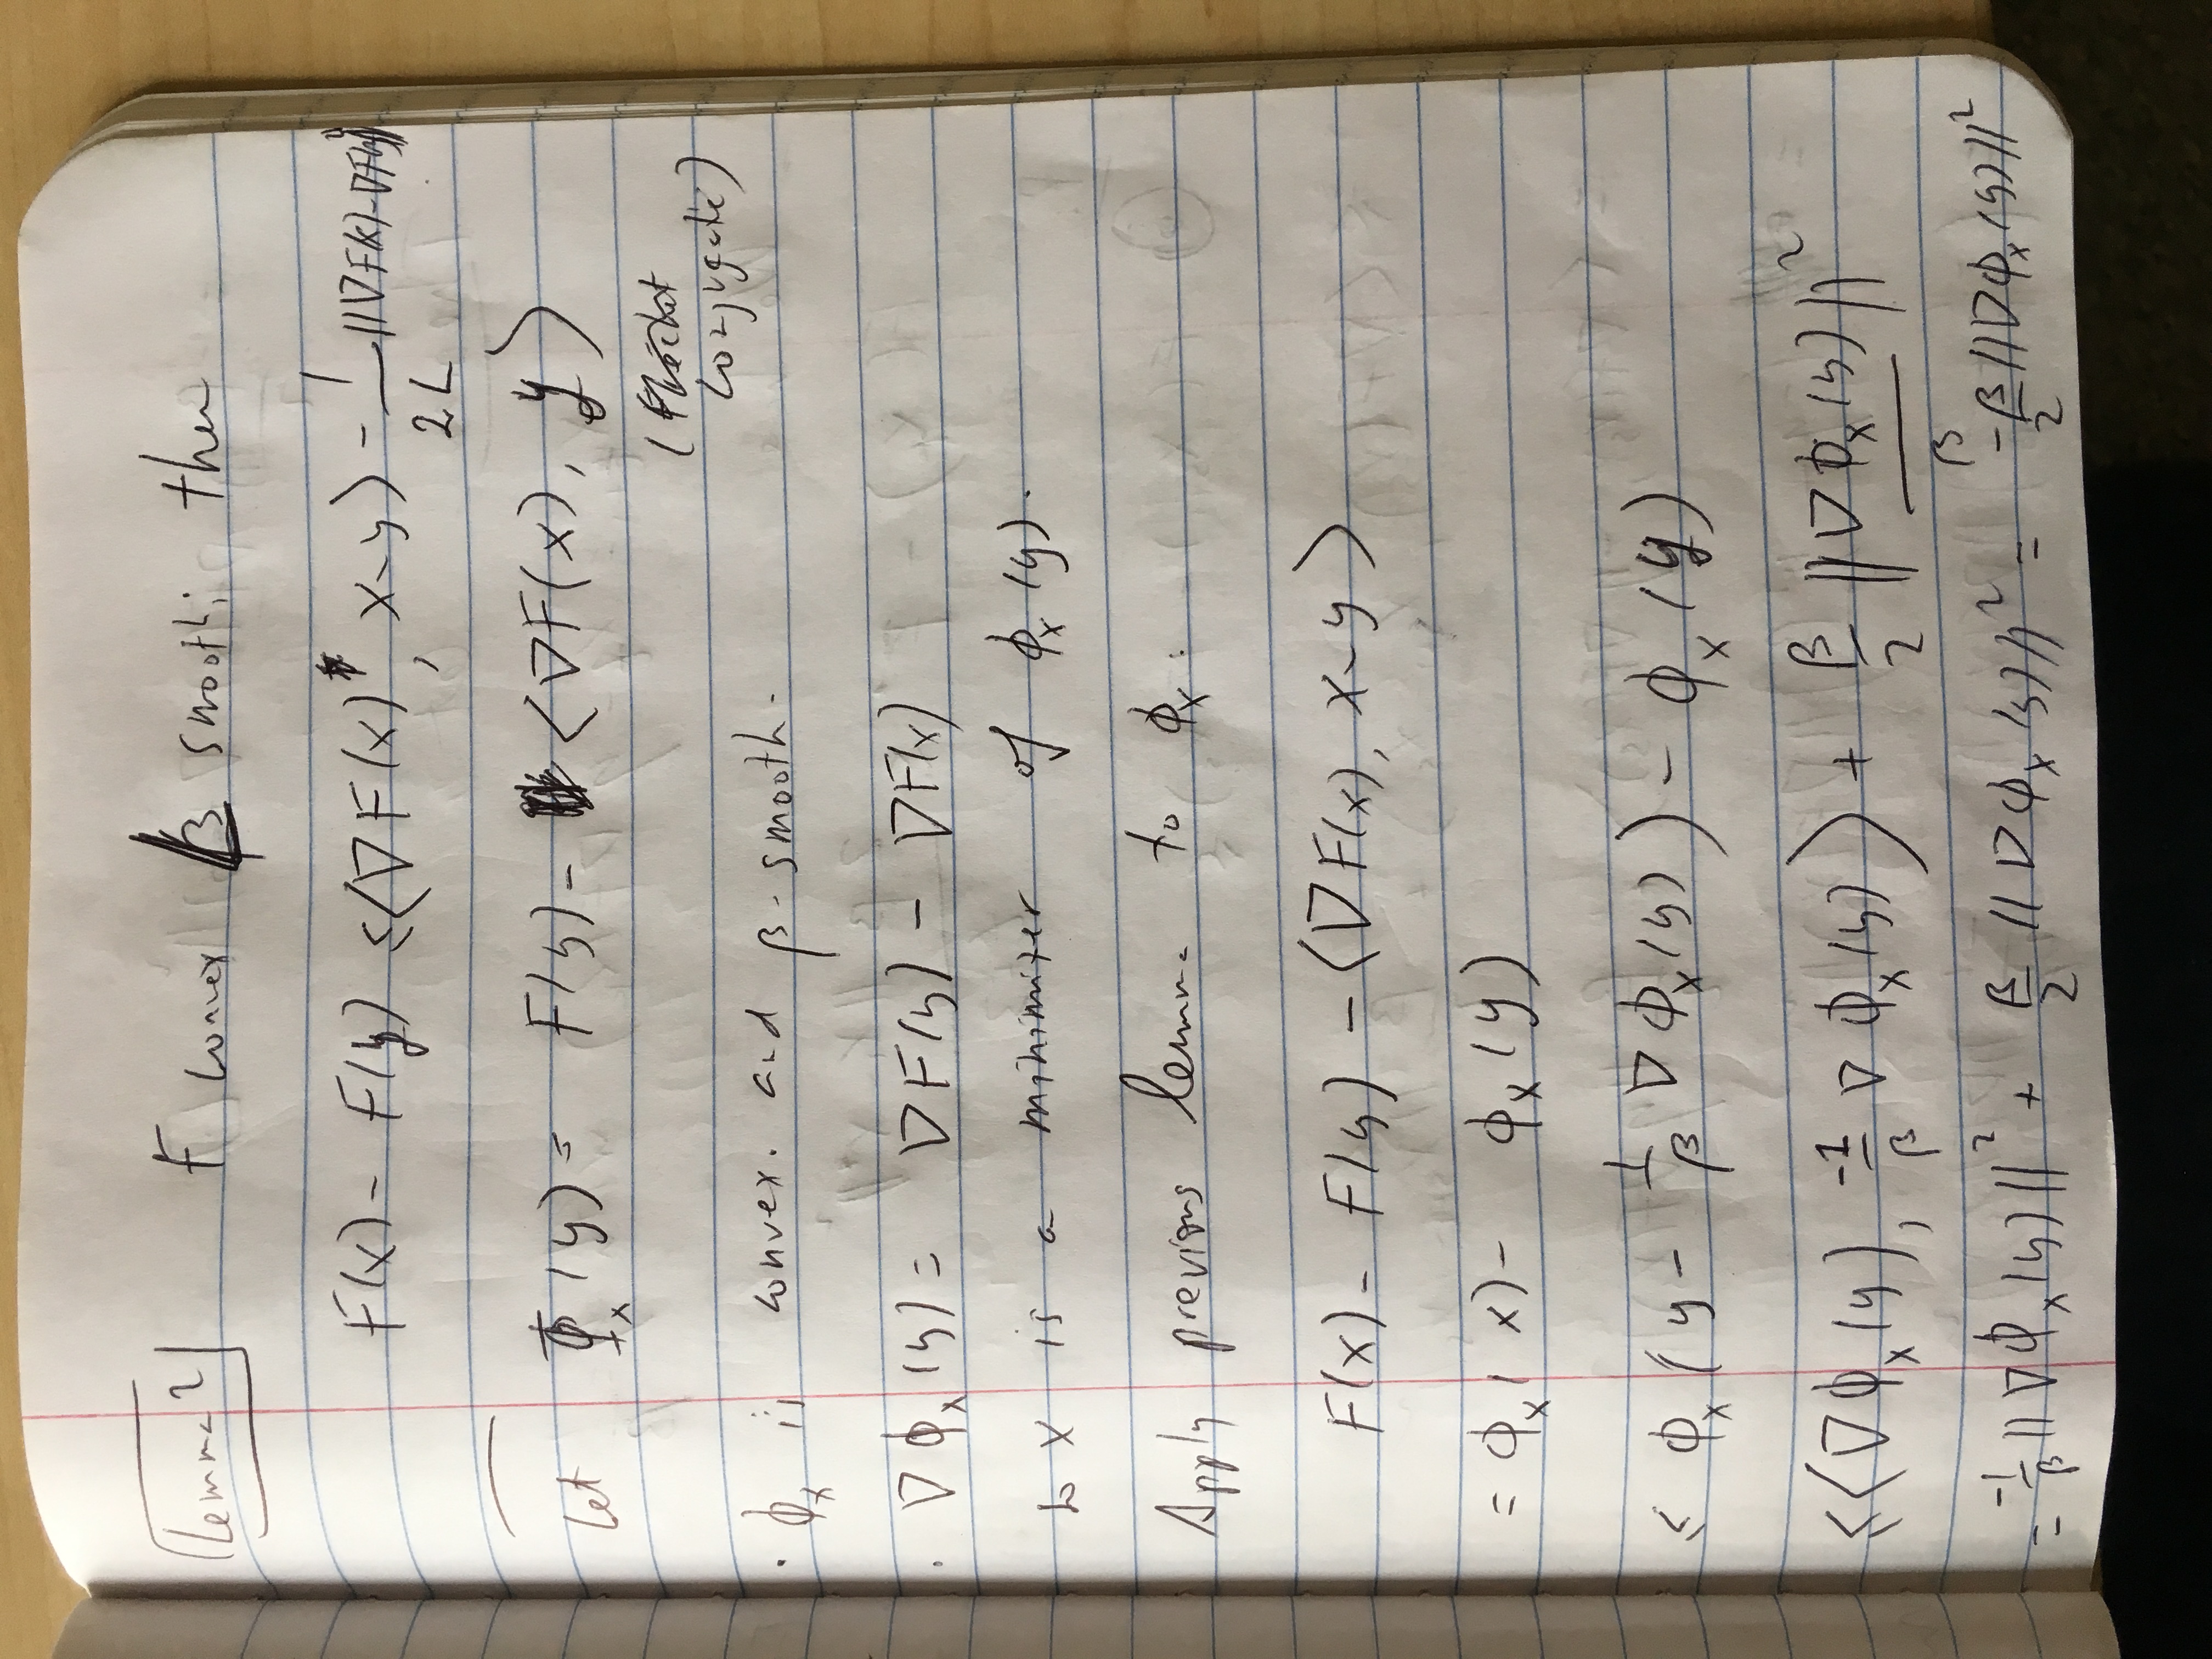 Lemma 2 F convex β smooth; then
F(x) - F(y) ≤ ⟨∇F(x), x-y⟩ - 1/2L ||∇F(x) - ∇F(y)||²
Let Φ_x(y) = F(y) - ⟨∇F(x), y⟩
conjugate)
· ϕ_x is convex. and β-smooth.
· ∇ϕ_x(y) = ∇F(y) - ∇F(x)
↳ x is a minimizer of ϕ_x(y).
Apply previous lemma to ϕ_x:
F(x) - F(y) - ⟨∇F(x), x-y⟩
= ϕ_x(x) - ϕ_x(y)
≤ ϕ_x(y - 1/β ∇ϕ_x(y)) - ϕ_x(y)
≤ ⟨∇ϕ_x(y), -1/β ∇ϕ_x(y)⟩ + β/2 ||∇ϕ_x(y)/β||²
= -1/β ||∇ϕ_x(y)||² + β/2 ||∇ϕ_x(y)||² = -β/2 ||∇ϕ_x(y)||²